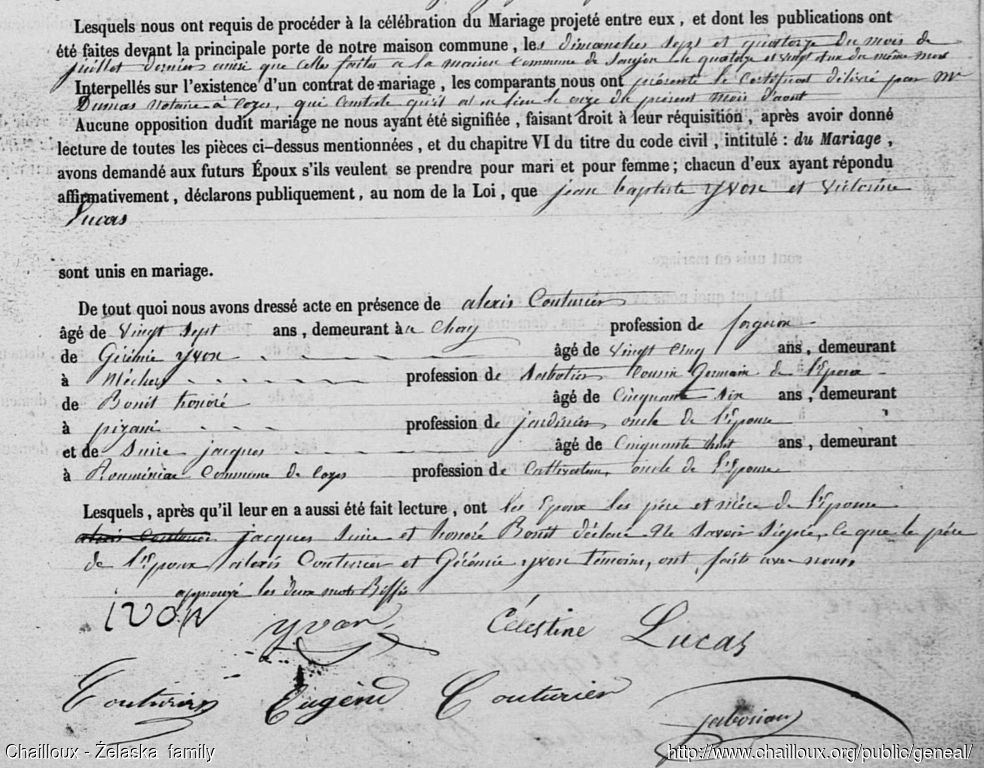 Lesquels nous ont requis de procéder à la célébration du Mariage projeté entre eux, et dont les publications ont
été faites devant la principale porte de notre maison commune, les dimanches sept et quatorze du mois de
juillet dernier ainsi que celles faites a la maison Commune de Saujon le quatorze et vingt et un du même mois
Interpellés sur l'existence d'un contrat de mariage, les comparants nous ont présenté le Certificat délivré par Mr
Dumas notaire à Cozes, qui Constate qu'il a le onze du présent mois d'aout
Aucune opposition dudit mariage ne nous ayant été signifiée, faisant droit à leur réquisition, après avoir donné
lecture de toutes les pièces ci-dessus mentionnées, et du chapitre VI du titre du code civil, intitulé : du Mariage,
avons demandé aux futurs Époux s'ils veulent se prendre pour mari et pour femme ; chacun d'eux ayant répondu
affirmativement, déclarons publiquement, au nom de la Loi, que jean baptiste yvon et victorine
Lucas
sont unis en mariage.
De tout quoi nous avons dressé acte en présence de alexis Couturier
âgé de vingt sept ans, demeurant à profession de forgeron
de Gérémie yvon âgé de vingt cinq ans, demeurant
à Méchers profession de sabotier Cousin Germain de l'Epoux
de Bonit honoré âgé de Cinquante six ans, demeurant
à profession de jardinier oncle de l'Epouse
et de Suire jacques âgé de Cinquante huit ans, demeurant
à Commune de Cozes profession de Cultivateur, oncle de l'Epouse
Lesquels, après qu'il leur en a aussi été fait lecture, ont les Epoux les père et mère de l'Epouse
alexis Couturier jacques Suire et honoré Bonit déclaré Ne Savoir Signer, Ce que le père
de l'Epoux alexis Couturier et Gérémie yvon témoins, ont faits avec nous
approuvé les deux mots Biffés
IVON yvon Célestine Lucas
Couturier Eugène Couturier
Chailloux - Żelaska family http://www.chailloux.org/public/geneal/